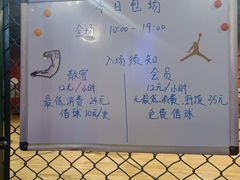 今日包场
全场 10:00 - 19:00
入场须知
散客
12元/小时
最低消费24元
借球10元/次
会员
12元/小时
无最低消费,野孩35元
免费借球